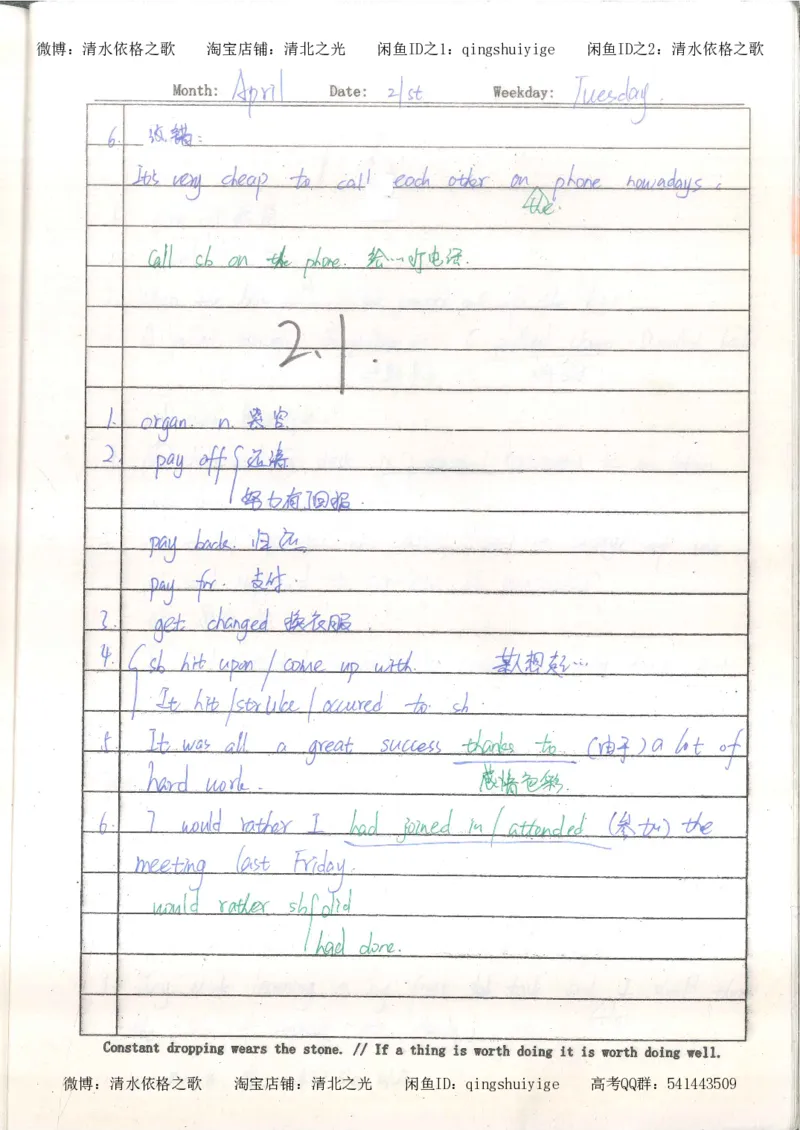 微博：清水依格之歌 淘宝店铺：清北之光 闲鱼ID之1：qingshuiyige 闲鱼ID之2：清水依格之歌
Month: April Date: 21st Weekday: Tuesday.
6. 改错：
It's very cheap to call each other on phone nowadays.
the
Call sb on the phone. 给…打电话.
2.1.
1. organ. n. 器官
2. pay off { 还清
努力有了回报.
pay back. 归还.
pay for. 支付.
3. get changed 换衣服.
4. { sb hit upon / come up with. 某人想起…
It hit / strike / occured to sb.
5. It was all a great success thanks to (由于) a lot of
hard work. 感情色彩.
6. I would rather I had joined in / attended (参加) the
meeting last Friday.
would rather sb { did
had done.
Constant dropping wears the stone. // If a thing is worth doing it is worth doing well.
微博：清水依格之歌 淘宝店铺：清北之光 闲鱼ID：qingshuiyige 高考QQ群：541443509